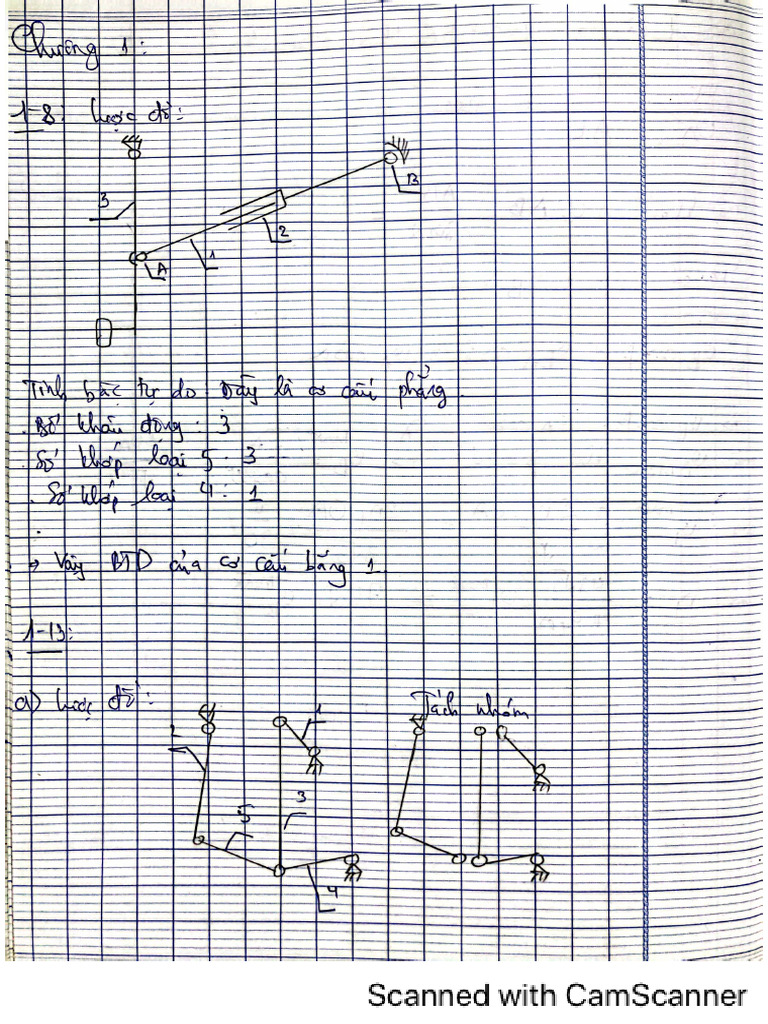 Chương 1:
1-8: Lược đồ:
3
B
2
1
A
Tính bậc tự do. Đây là cơ cấu phẳng.
. Số khâu động: 3
. Số khớp loại 5: 3
. Số khớp loại 4: 1
→ Vậy BTD của cơ cấu bằng 1.
1-13:
a) Lược đồ:
Tách nhóm
1
2
3
5
4
Scanned with CamScanner